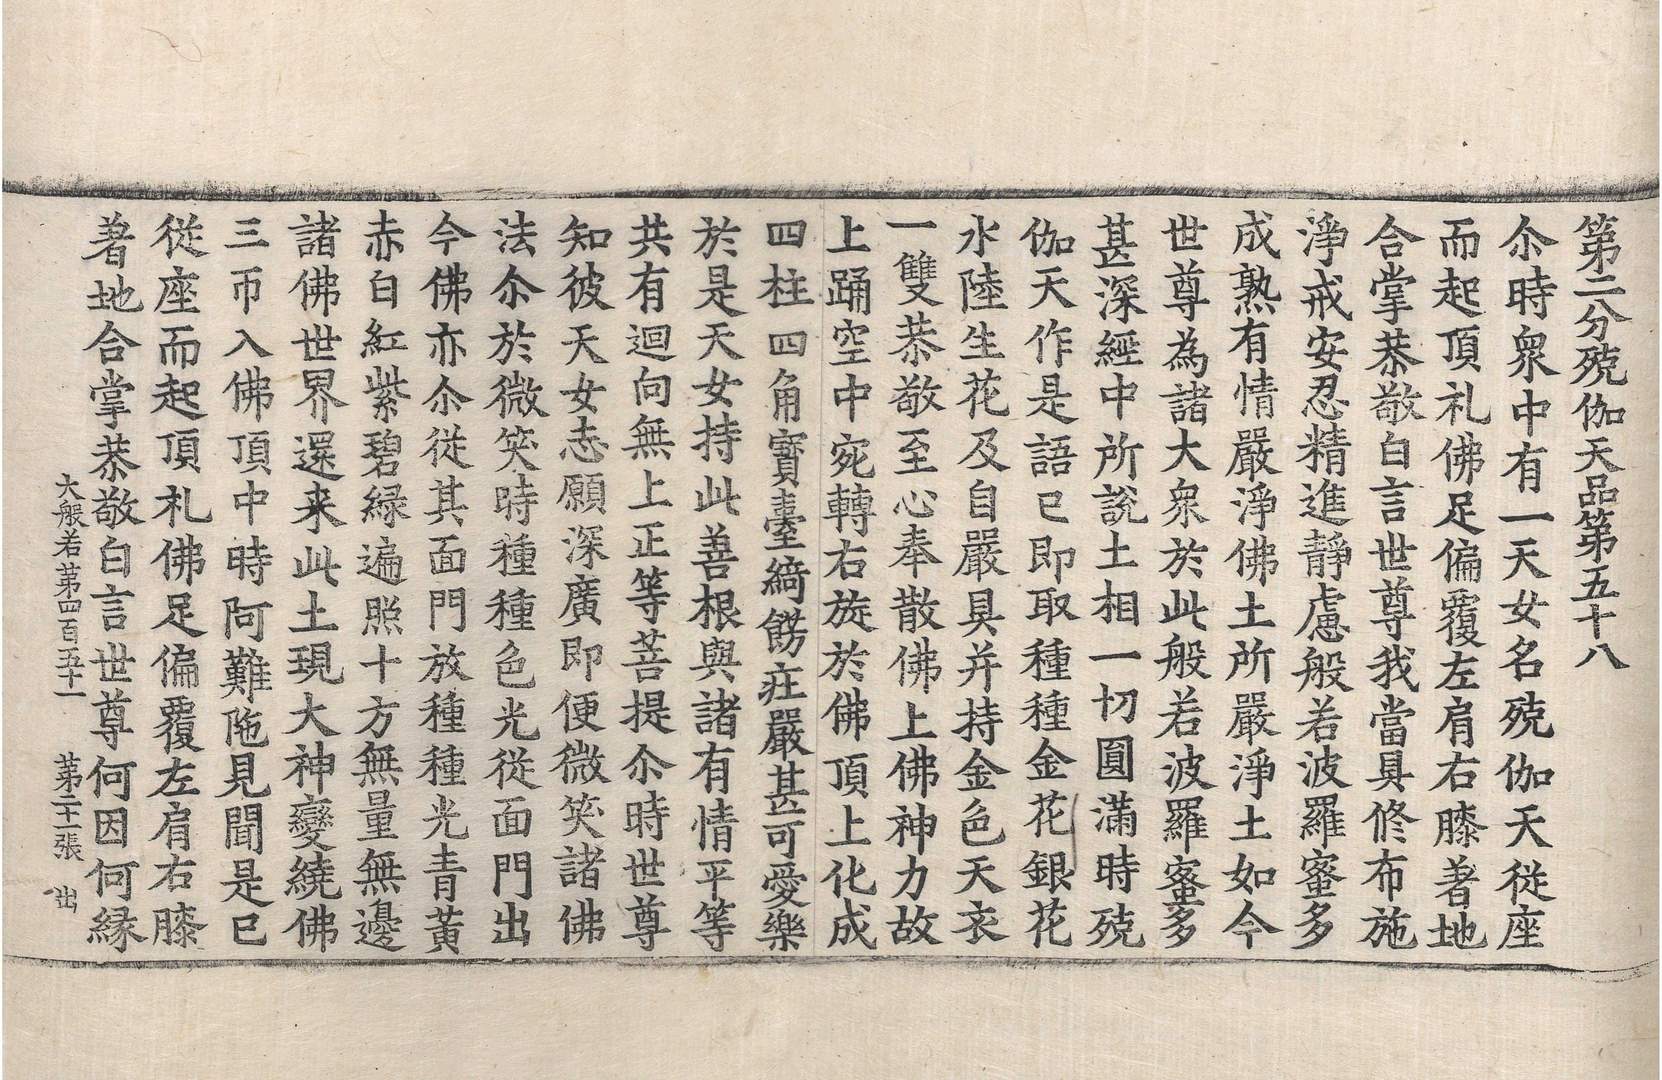 第二分殑伽天品第五十八
尒時衆中有一天女名殑伽天從座
而起頂礼佛足偏覆左肩右膝著地
合掌恭敬白言世尊我當具修布施
淨戒安忍精進靜慮般若波羅蜜多
成熟有情嚴淨佛土所嚴淨土如今
世尊為諸大衆於此般若波羅蜜多
甚深經中所說土相一切圓滿時殑
伽天作是語已即取種種金花銀花
水陸生花及自嚴具并持金色天衣
一雙恭敬至心奉散佛上佛神力故
上踊空中宛轉右旋於佛頂上化成
四柱四角寶臺綺餝庄嚴甚可愛樂
於是天女持此善根與諸有情平等
共有迴向無上正等菩提尒時世尊
知彼天女志願深廣即便微笑諸佛
法尒於微笑時種種色光從面門出
今佛亦尒從其面門放種種光青黃
赤白紅紫碧緑遍照十方無量無邊
諸佛世界還来此土現大神變繞佛
三帀入佛頂中時阿難陁見聞是已
從座而起頂礼佛足偏覆左肩右膝
著地合掌恭敬白言世尊何因何緣
大般若苐四百五十一 苐二十一張 出